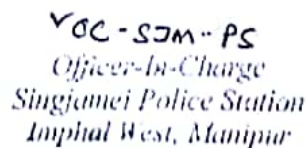 OC-SJM-PS
Officer-In-Charge
Singjamei Police Station
Imphal West, Manipur